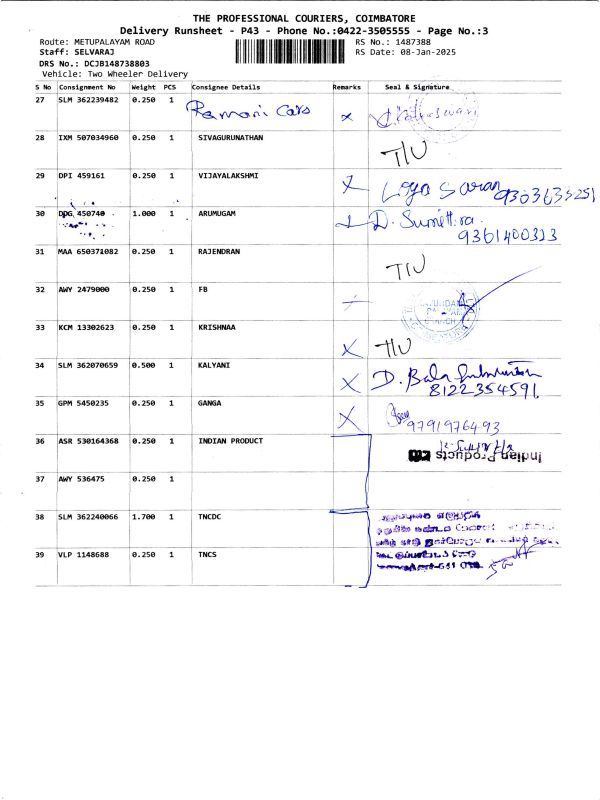 THE PROFESSIONAL COURIERS, COIMBATORE
Delivery Runsheet - P43 - Phone No.:0422-3505555 - Page No.:3
Route: METUPALAYAM ROAD RS No.: 1487388
Staff: SELVARAJ RS Date: 08-Jan-2025
DRS No.: DCJB148738803
Vehicle: Two Wheeler Delivery
S No Consignment No Weight PCS Consignee Details Remarks Seal & Signature
27 SLM 362239482 0.250 1 Ramani Cars x
28 IXM 507034960 0.250 1 SIVAGURUNATHAN T/U
29 DPI 459161 0.250 1 VIJAYALAKSHMI x Saran 9303635251
30 DPG 450740 1.000 1 ARUMUGAM x D. Sumithra
9361400323
31 MAA 650371082 0.250 1 RAJENDRAN T/U
32 AWY 2479000 0.250 1 FB
33 KCM 13302623 0.250 1 KRISHNAA x T/U
34 SLM 362070659 0.500 1 KALYANI x D. Bala
8122354591.
35 GPM 5450235 0.250 1 GANGA x
9791976493
36 ASR 530164368 0.250 1 INDIAN PRODUCT Indian Products
37 AWY 536475 0.250 1
38 SLM 362240066 1.700 1 TNCDC
39 VLP 1148688 0.250 1 TNCS